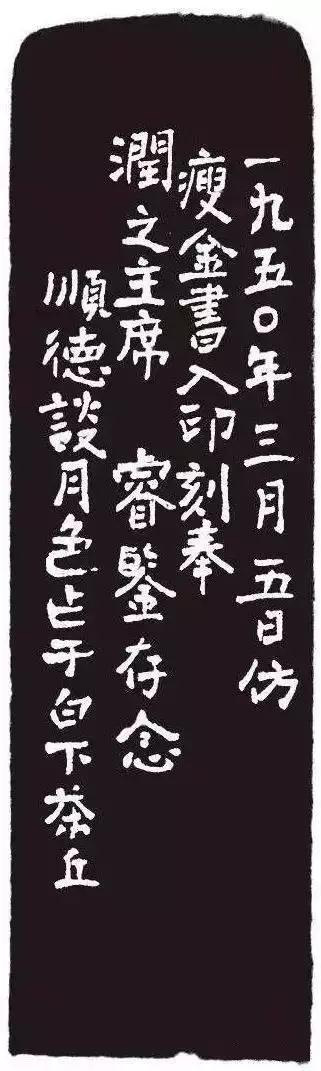 一九五〇年三月五日仿
瘦金書入印刻奉
潤之主席 睿鑒存念
順德談月色占于白下茶丘